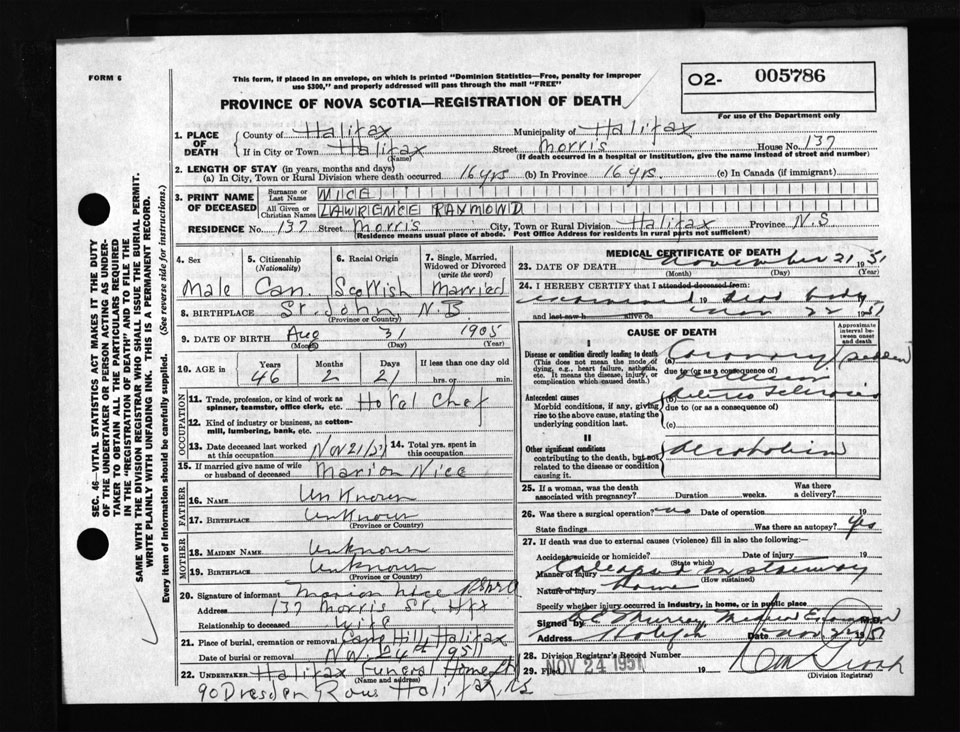 FORM 6
This form, if placed in an envelope, on which is printed "Dominion Statistics—Free, penalty for improper
use $300," and properly addressed will pass through the mail "FREE"
PROVINCE OF NOVA SCOTIA—REGISTRATION OF DEATH
02- 005786
For use of the Department only
1. PLACE OF DEATH
County of Halifax Municipality of Halifax
If in City or Town Halifax Street Morris House No. 137
(Name) (If death occurred in a hospital or institution, give the name instead of street and number)
2. LENGTH OF STAY (in years, months and days)
(a) In City, Town or Rural Division where death occurred 16 yrs (b) In Province 16 yrs. (c) In Canada (if immigrant)
3. PRINT NAME OF DECEASED
Surname or Last Name NICE
All Given or Christian Names LAWRENCE RAYMOND
RESIDENCE No. 137 Street Morris City, Town or Rural Division Halifax Province N.S
Residence means usual place of abode. Post Office Address for residents in rural parts not sufficient)
4. Sex
Male
5. Citizenship (Nationality)
Can.
6. Racial Origin
Scottish
7. Single, Married, Widowed or Divorced (write the word)
Married
8. BIRTHPLACE St. John N.B.
(Province or Country)
9. DATE OF BIRTH Aug 31 1905
(Month) (Day) (Year)
10. AGE in Years Months Days If less than one day old
46 2 21 hrs. or min.
OCCUPATION
11. Trade, profession, or kind of work as spinner, teamster, office clerk, etc. Hotel Chef
12. Kind of industry or business, as cotton-mill, lumbering, bank, etc.
13. Date deceased last worked at this occupation Nov 21/51
14. Total yrs. spent in this occupation
15. If married give name of wife or husband of deceased Marion Nice
FATHER
16. NAME Unknown
17. BIRTHPLACE Unknown
(Province or Country)
MOTHER
18. MAIDEN NAME Unknown
19. BIRTHPLACE Unknown
(Province or Country)
20. Signature of informant Marion Nice
Address 137 Morris St. Hfx
Relationship to deceased Wife
21. Place of burial, cremation or removal Camp Hill, Halifax
Date of burial or removal Nov. 24th 1951
22. UNDERTAKER Halifax Funeral Home
(Name and address)
90 Dresden Row Halifax, NS
MEDICAL CERTIFICATE OF DEATH
23. DATE OF DEATH November 21 1951
(Month) (Day) (Year)
24. I HEREBY CERTIFY that I attended deceased from:
examined 19 dead body
and last saw h alive on Nov 22 1951
CAUSE OF DEATH
Approximate interval between onset and death
I
Disease or condition directly leading to death
(This does not mean the mode of dying, e.g., heart failure, asthenia, etc. It means the disease, injury, or complication which caused death.)
(a) Coronary (sudden)
due to (or as a consequence of)
Antecedent causes
Morbid conditions, if any, giving rise to the above cause, stating the underlying condition last.
(b)
due to (or as a consequence of)
(c)
II
Other significant conditions
contributing to the death, but not related to the disease or condition causing it.
Alcoholism
25. If a woman, was the death associated with pregnancy? Duration weeks. Was there a delivery?
26. Was there a surgical operation? no Date of operation 19
State findings Was there an autopsy? Yes
27. If death was due to external causes (violence) fill in also the following:—
Accident, suicide or homicide? Date of injury 19
(State which)
Manner of injury Collapsed in stairway
(How sustained)
Nature of injury
Specify whether injury occurred in industry, in home, or in public place
Signed by Murray Medical Examiner M.D.
Address Date Nov 22 1951
28. Division Registrar's Record Number
29. Filed NOV 24 1951 19
(Division Registrar)
SEC. 46—VITAL STATISTICS ACT MAKES IT THE DUTY
OF THE UNDERTAKER OR PERSON ACTING AS UNDER-
TAKER TO OBTAIN ALL THE PARTICULARS REQUIRED
IN THE "REGISTRATION OF DEATH" AND TO FILE THE
SAME WITH THE DIVISION REGISTRAR WHO SHALL ISSUE THE BURIAL PERMIT.
WRITE PLAINLY WITH UNFADING INK. THIS IS A PERMANENT RECORD.
Every item of information should be carefully supplied. (See reverse side for instructions.)